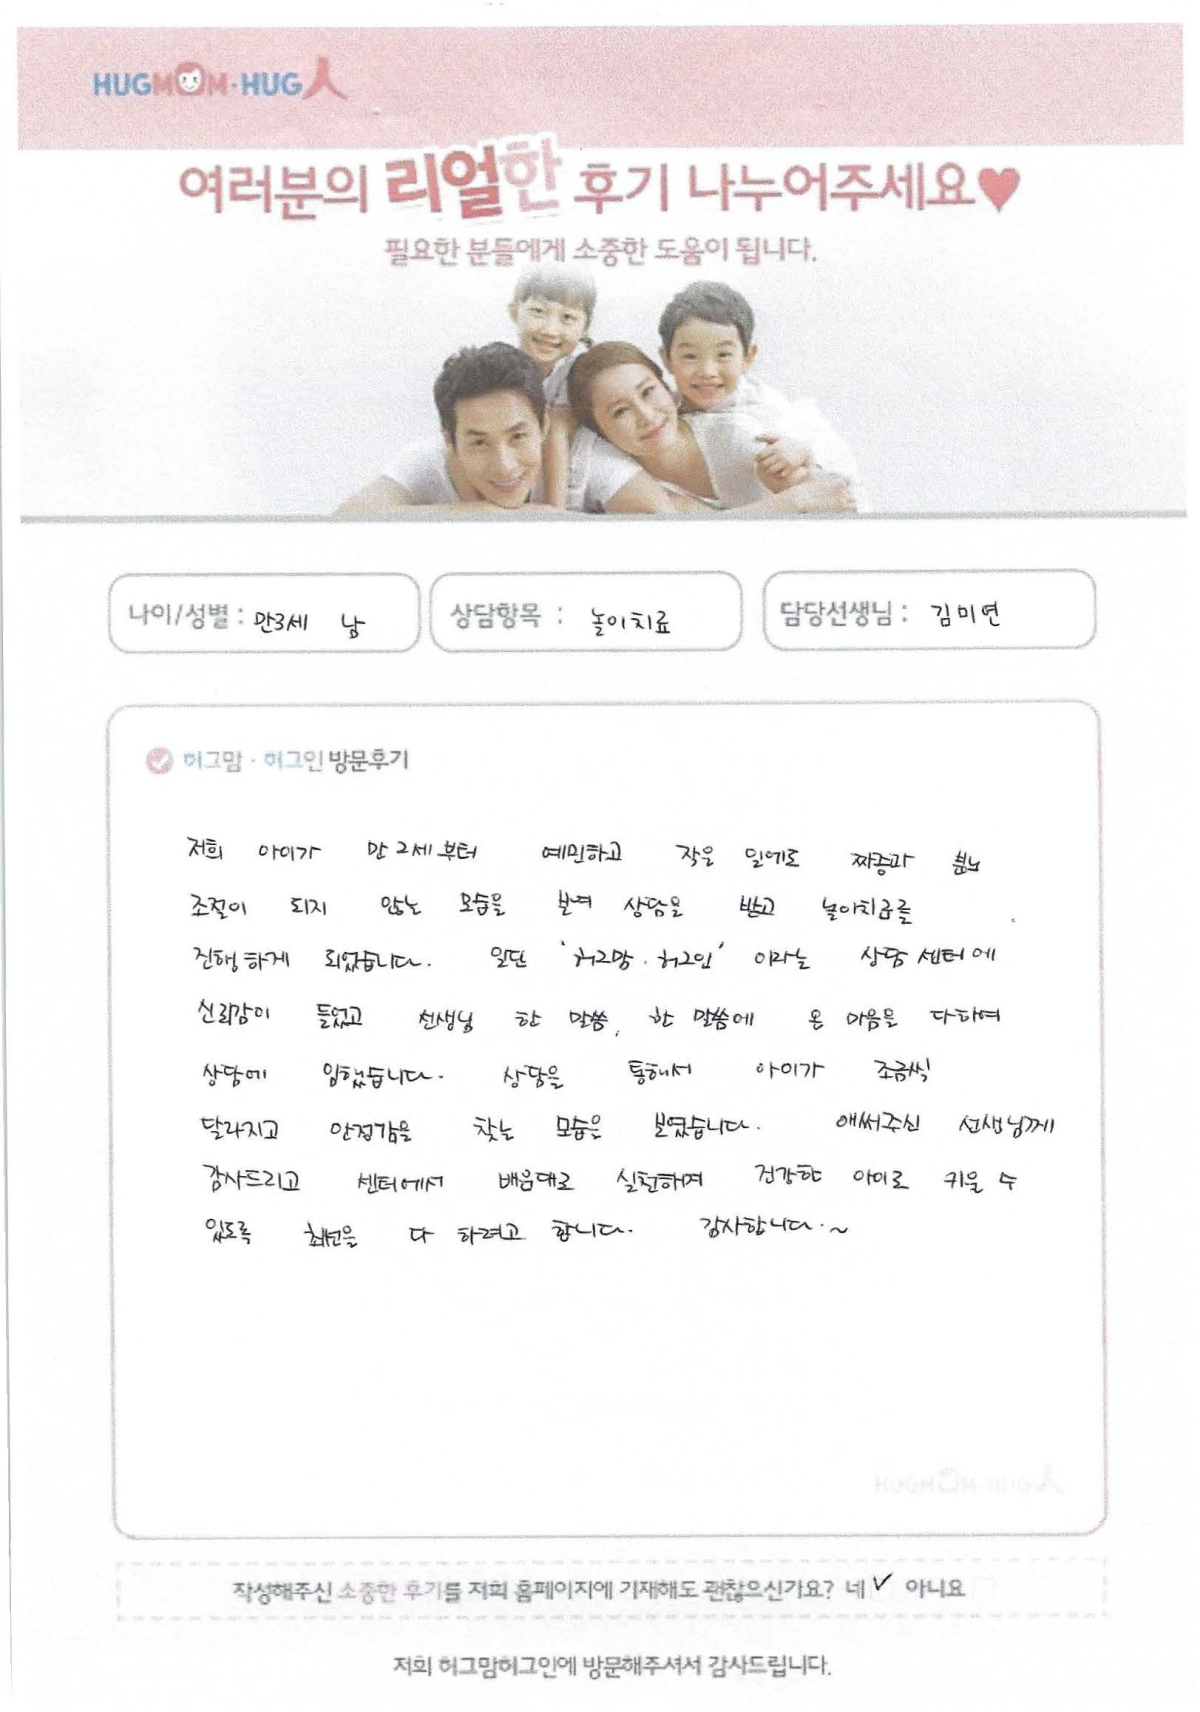 HUGMOM·HUG人
여러분의 리얼한 후기 나누어주세요♥
필요한 분들에게 소중한 도움이 됩니다.
나이/성별 : 만3세 남 상담항목 : 놀이치료 담당선생님 : 김미연
허그맘 · 허그인 방문후기
저희 아이가 만 2세부터 예민하고 작은 일에도 짜증과 분노
조절이 되지 않는 모습을 보여 상담을 받고 놀이치료를
진행하게 되었습니다. 일단 '허그맘·허그인' 이라는 상담센터에
신뢰감이 들었고 선생님 한 말씀, 한 말씀에 온 마음을 다하여
상담에 임했습니다. 상담을 통해서 아이가 조금씩
달라지고 안정감을 찾는 모습을 보였습니다. 애써주신 선생님께
감사드리고 센터에서 배움대로 실천하며 건강한 아이로 키울 수
있도록 최선을 다 하려고 합니다. 감사합니다.~
작성해주신 소중한 후기를 저희 홈페이지에 기재해도 괜찮으신가요? 네 ✓ 아니요
저희 허그맘허그인에 방문해주셔서 감사드립니다.